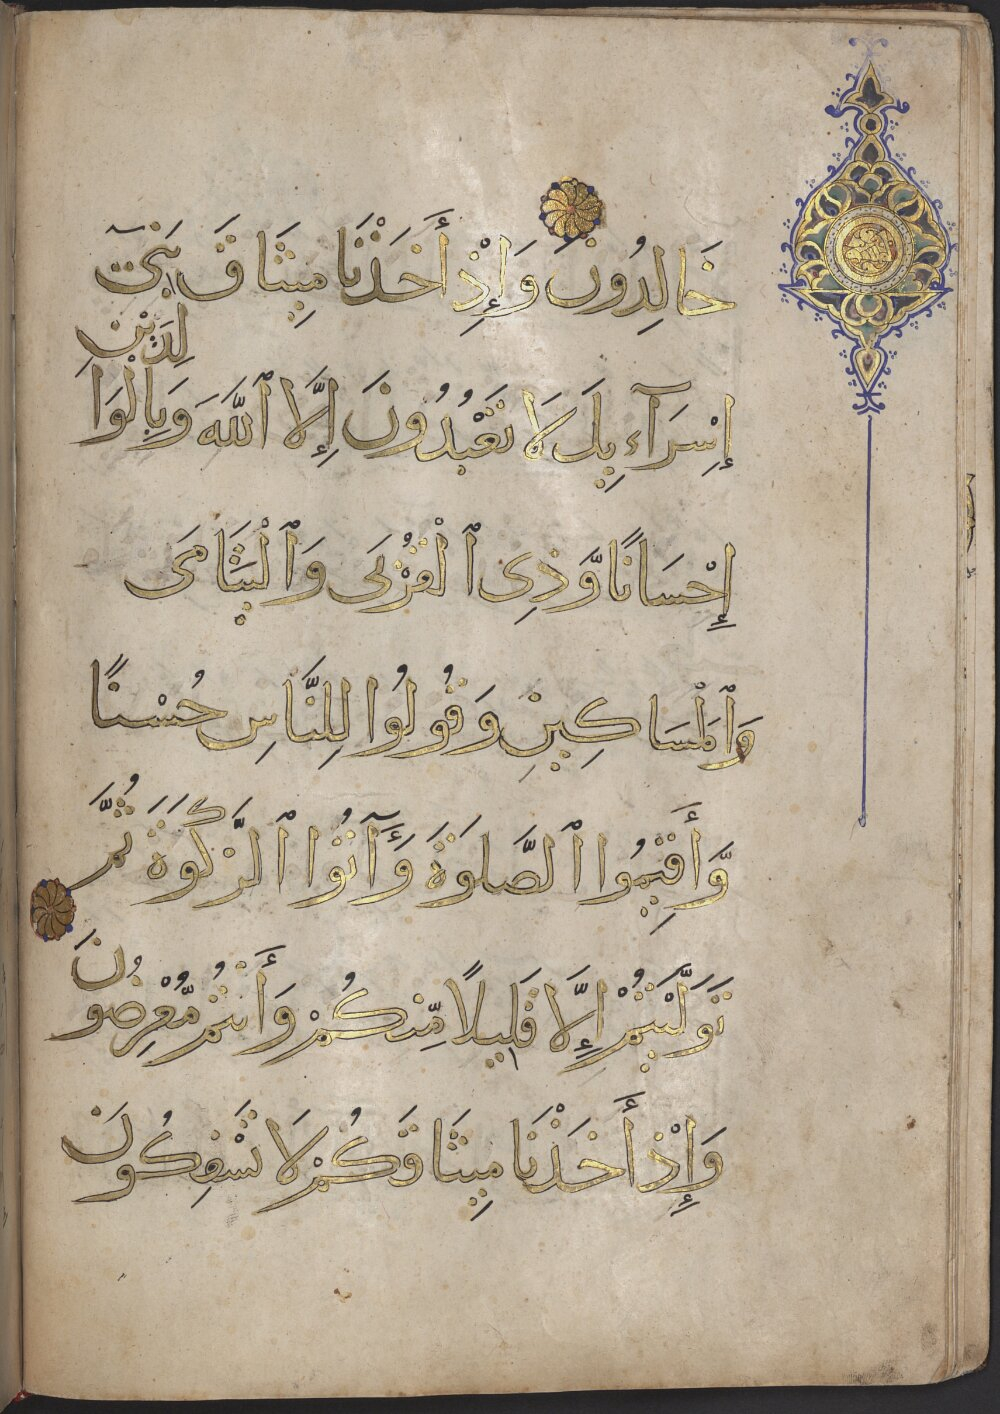 خَالِدُونَ وَإِذْ أَخَذْنَا مِيثَاقَ بَنِىٓ
إِسْرَآءِيلَ لَا تَعْبُدُونَ إِلَّا ٱللَّهَ وَبِالْوَالِدَيْنِ
إِحْسَانًا وَّذِى ٱلْقُرْبَى وَٱلْيَتَامَى
وَٱلْمَسَاكِينِ وَقُولُوا لِلنَّاسِ حُسْنًا
وَّأَقِيمُوا ٱلصَّلَوٰةَ وَءَآتُوا ٱلزَّكَوٰةَ ثُمَّ
تَوَلَّيْتُمْ إِلَّا قَلِيلًا مِّنكُمْ وَأَنتُم مُّعْرِضُونَ
وَإِذْ أَخَذْنَا مِيثَاقَكُمْ لَا تَسْفِكُونَ